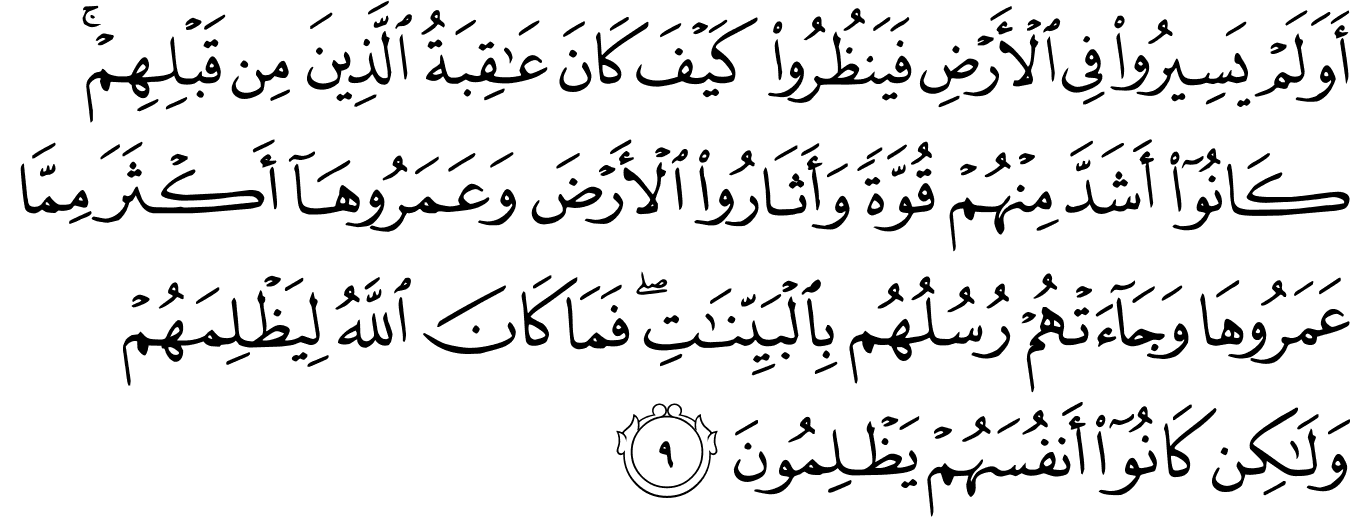 أَوَلَمۡ يَسِيرُواْ فِي ٱلۡأَرۡضِ فَيَنظُرُواْ كَيۡفَ كَانَ عَٰقِبَةُ ٱلَّذِينَ مِن قَبۡلِهِمۡۚ
كَانُوٓاْ أَشَدَّ مِنۡهُمۡ قُوَّةٗ وَأَثَارُواْ ٱلۡأَرۡضَ وَعَمَرُوهَآ أَكۡثَرَ مِمَّا
عَمَرُوهَا وَجَآءَتۡهُمۡ رُسُلُهُم بِٱلۡبَيِّنَٰتِۖ فَمَا كَانَ ٱللَّهُ لِيَظۡلِمَهُمۡ
وَلَٰكِن كَانُوٓاْ أَنفُسَهُمۡ يَظۡلِمُونَ ٩